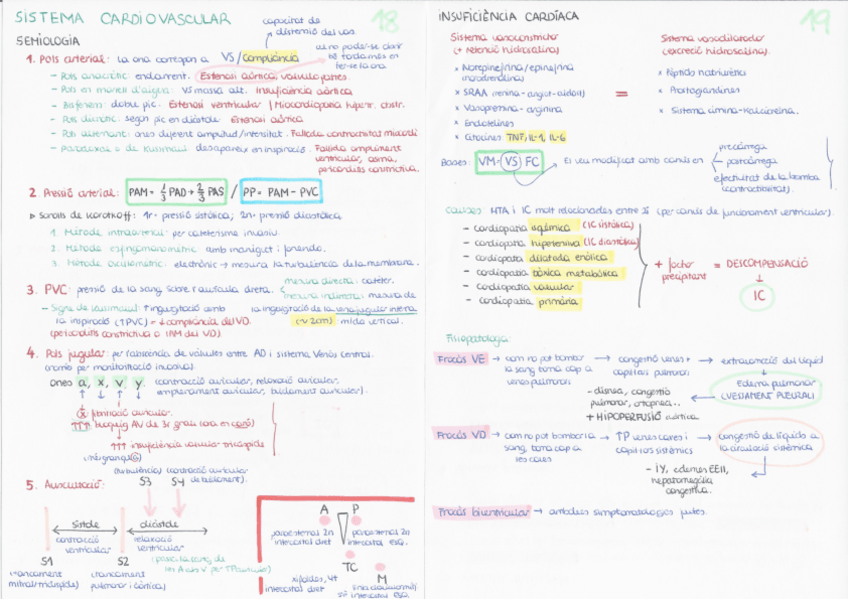 SISTEMA CARDIOVASCULAR
18
capacitat de
distensió del vas
SEMIOLOGIA
1. Pols arterial: la ona correspon a VS/Compliància
- Pols anacròtic: enlairament. Estenosi aòrtica, valvulopaties
- Pols en martell d'aigua: VS massa alt. Insuficiència aòrtica
- Bisferiens: doble pic. Estenosi ventricular / Miocardiopatia hipertr. obstr.
- Pols dicròtic: segon pic en diàstole. Estenosi aòrtica
- Pols alternant: ones diferent amplitud/intensitat. Fallada contractilitat miocardi
- Paradoxal = de Kussmaul: desapareix en inspiració. Fallada ompliment
ventricular, asma,
pericarditis constrictiva.
2 Pressió arterial: PAM = 1/3 PAD + 2/3 PAS / PP = PAM - PVC
▹ Sorolls de Korotkoff: 1r: pressió sistòlica; 2n: pressió diastòlica
1. Mètode intraarterial: per cateterisme invasiu.
2. Mètode esfingomanomètric: amb maniguet i fonendo.
3. Mètode oscilomètric: electrònic → mesura la turbulència de la membrana.
3. PVC: pressió de la sang sobre l'aurícula dreta.
mesura directa: catèter.
mesura indirecta: mesura de
- Signe de Kussmaul: ↑ingurgitació amb la ingurgitació de la vena jugular interna
la inspiració (↑PVC) = ↓compliància del VD. (~2cm) mida vertical.
(pericarditis constrictiva o IAM del VD)
4. Pols jugular: per l'absència de vàlvules entre AD i sistema Venós Central.
(només per monitorització invasiva).
ones a, x, v y. (contracció auricular, relaxació auricular,
ompliment auricular, buidament auricular).
fibril·lació auricular.
↑↑↑: bloqueig AV de 3r grau (ona en canó)
↑↑↑ insuficiència valvular tricúspide
(turbulències) contracció auricular
5. Auscultació: S3 S4
sístole diàstole
contracció relaxació
ventricular ventricular
S1 S2
(tancament (tancament
mitral i tricúspide) pulmonar i aòrtica)
A P
paraesternal 2n paraesternal 2n
intercostal dret intercostal esq.
TC
M
xifoides, 4t
intercostal dret
5è intercostal esq.
INSUFICIÈNCIA CARDÍACA
19
Sistema vasoconstrictor Sistema vasodilatador
(+ retenció hidrosalina) (excreció hidrosalina).
* Norepinefrina/epinefrina * Pèptids natriurètics
(noradrenalina)
* SRAA (renina-angiot-aldost) = * Prostaglandines
* Vasopressina-arginina * Sistema cinina-Kalicreïna.
* Endotelines
* Citocines TNF, IL-1, IL-6
Bases: VM = (VS) FC Es veu modificat amb canvis en
precàrrega
postcàrrega
efectivitat de la bomba
(contractilitat).
Causes: HTA i IC molt relacionades entre sí (per canvis de funcionament ventricular).
- cardiopatia isquèmica (IC sistòlica)
- cardiopatia hipertensiva (IC diastòlica)
- cardiopatia dilatada enòlica
- cardiopatia tòxica metabòlica
- cardiopatia valvular
- cardiopatia primària
+ factor = DESCOMPENSACIÓ
precipitant ↓
IC
Fisiopatologia:
Fracàs VE → com no pot bombar → congestió venes + → extravasació del líquid
la sang torna cap a capil·lars pulmonars
venes pulmonars
Edema pulmonar
(VESSAMENT PLEURAL)
- disnea, congestió
pulmonar, ortopnea...
+ HIPOPERFUSIÓ aòrtica
Fracàs VD → com no pot bombar la → ↑P venes caves i → congestió de líquids a
sang, torna cap a capil·lars sistèmics la circulació sistèmica
les caves
- IY, edemes EEII,
hepatomegàlia
congestiva.
Fracàs biventricular → ambdues simptomatologies juntes.